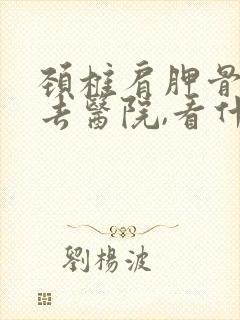 頚椎肩胛骨
去醫院,看什
劉楊波